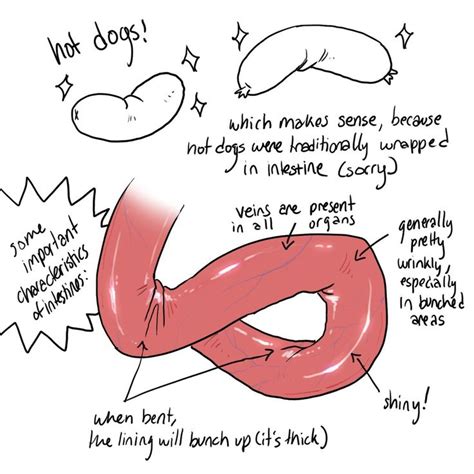 hot dogs!
which makes sense, because
hot dogs were traditionally wrapped
in intestine (sorry)
some
important
characteristics
of intestines:
veins are present
in all organs
generally
pretty
wrinkly,
especially
in bunched
areas
shiny!
when bent,
the lining will bunch up (it's thick)